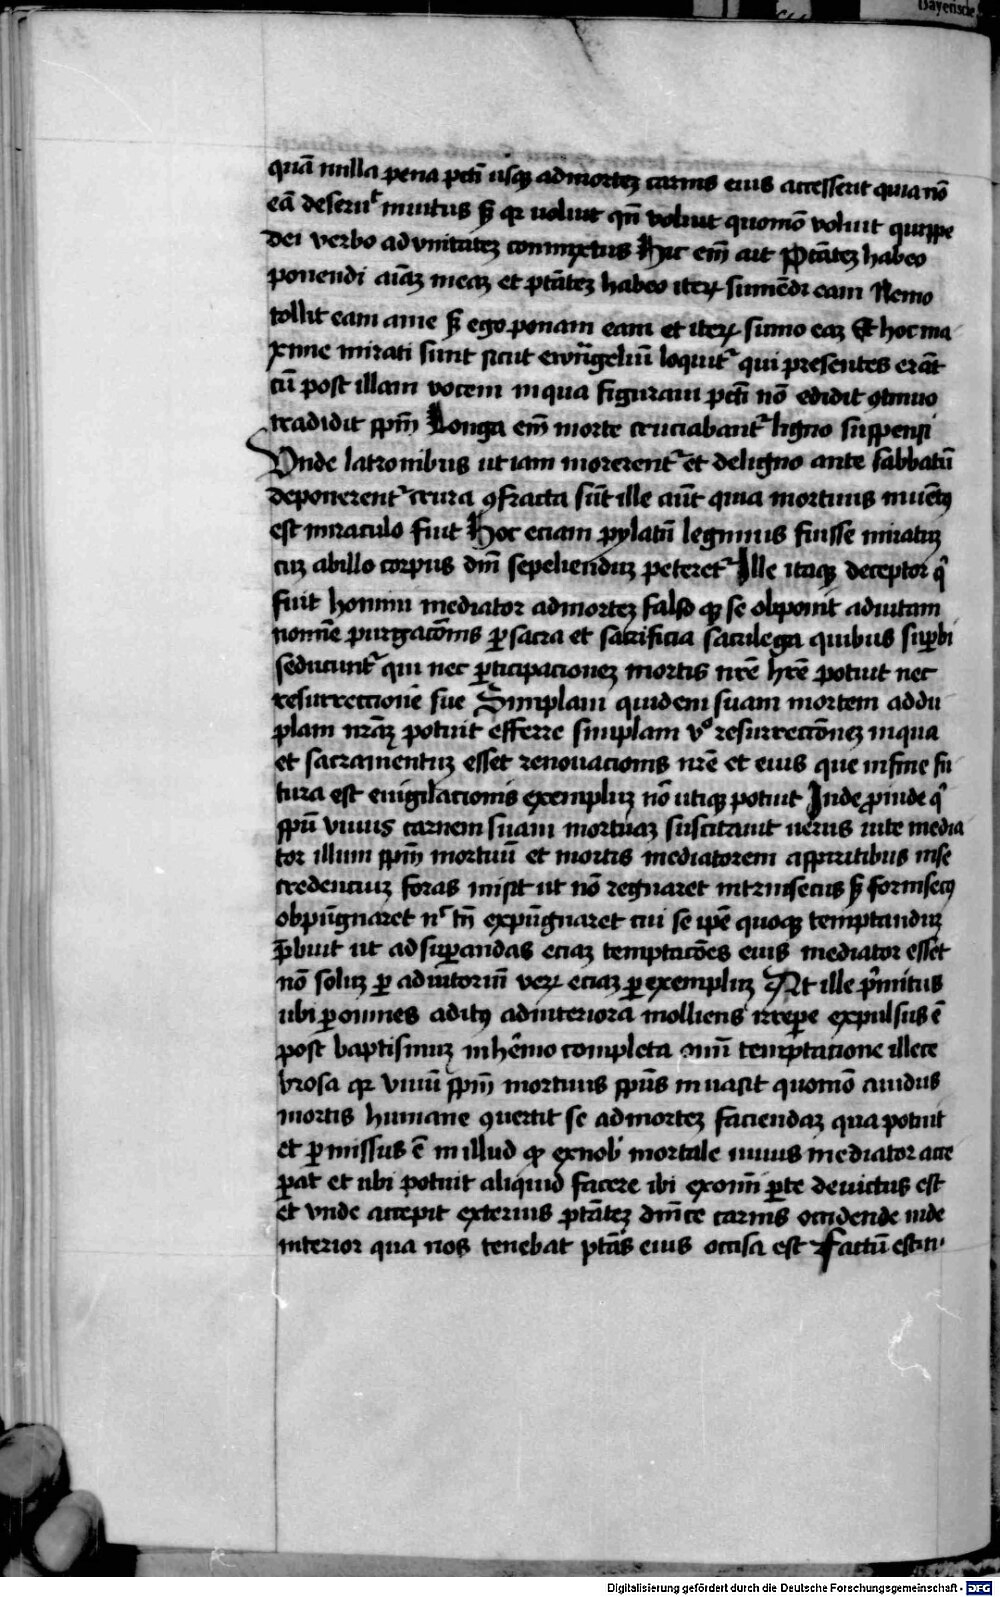 Bayerische
quā nulla pena pcti usq̃ ad mortez carnis eius accesserit quia nō
eā deseruit inuitus sꝫ qr uoluit qn̄ voluit quomō voluit quippe
dei verbo ad vnitatez conmixtus Hic em̄ ait Ptātez habeo
ponendi aīaz meaz et ptātez habeo iterꝝ sumēdi eam Nemo
tollit eam a me sꝫ ego ponam eam et iterꝝ sumo eaz Et hoc ma
xime mirati sunt sicut ewāngeliū loquitr qui presentes erāt
cū post illam vocem in qua figuram pcti nō edidit ꝯtinuo
tradidit spm̄ Longa em̄ morte cruciabantr ligno suspensi
Vnde latronibus ut iam morerentr et de ligno ante sabbatū
deponerentr crura ꝯfracta sūt ille aūt quia mortuus inuētꝰ
est miraculo fuit Hoc eciam pylatū legimus fuisse miratuz
cuz ab illo corpus dm̄ sepelienduz peteretr Ille itaqꝫ deceptor q̇
fuit homini mediator ad mortez falso qꝫ se obponit ad uitam
nomīe purgacōnis ꝑ sacra et sacrificia sacrilega quibus suꝑbi
seducuntr qui nec ꝑticipacionez mortis nrē hrē potuit nec
resurreccionē sue Simplam quidem suam mortem ad du
plam nrāz potuit efferre simplam vº resurrectōnez in qua
et sacramentuz esset renouacionis nrē et eius que in fine fu
tura est euigilacionis exempluz nō utiqꝫ potuit Inde proinde q̇
spū viuus carnem suam mortuaz suscitauit uerus uite media
tor illum spm̄ mortuū et mortis mediatorem a spiritibus in se
credenciuz foras misit ut nō regnaret intrinsecus sꝫ forinsecꝰ
obpūgnaret nc tn̄ expūgnaret cui se ip̄e quoqꝫ temptanduz
p̄buit ut ad suꝑandas eciaz temptacōes eius mediator esset
nō soluz ꝑ adiutoriū verꝝ eciaz ꝑ exempluz At ille p̄mitus
ubi ꝑ omnes aditꝰ ad interiora molliens irreꝑe expulsus ē
post baptismuz in hēmo completa omī temptacione illece
brosa qr viuū spm̄ mortuus spūs inuasit quomō auidus
mortis humane ꝯuertit se ad mortez faciendaz qua potuit
et ꝑmissus ē in illud qꝫ ex nob̄ mortale uiuus mediator acce
ꝑat et ubi potuit aliquid facere ibi ex omī ꝑte deuictus est
et vnde accepit exterius ptātez dnīce carnis occidende inde
interior qua nos tenebat ptās eius occisa est Factū est
Digitalisierung gefördert durch die Deutsche Forschungsgemeinschaft - DFG